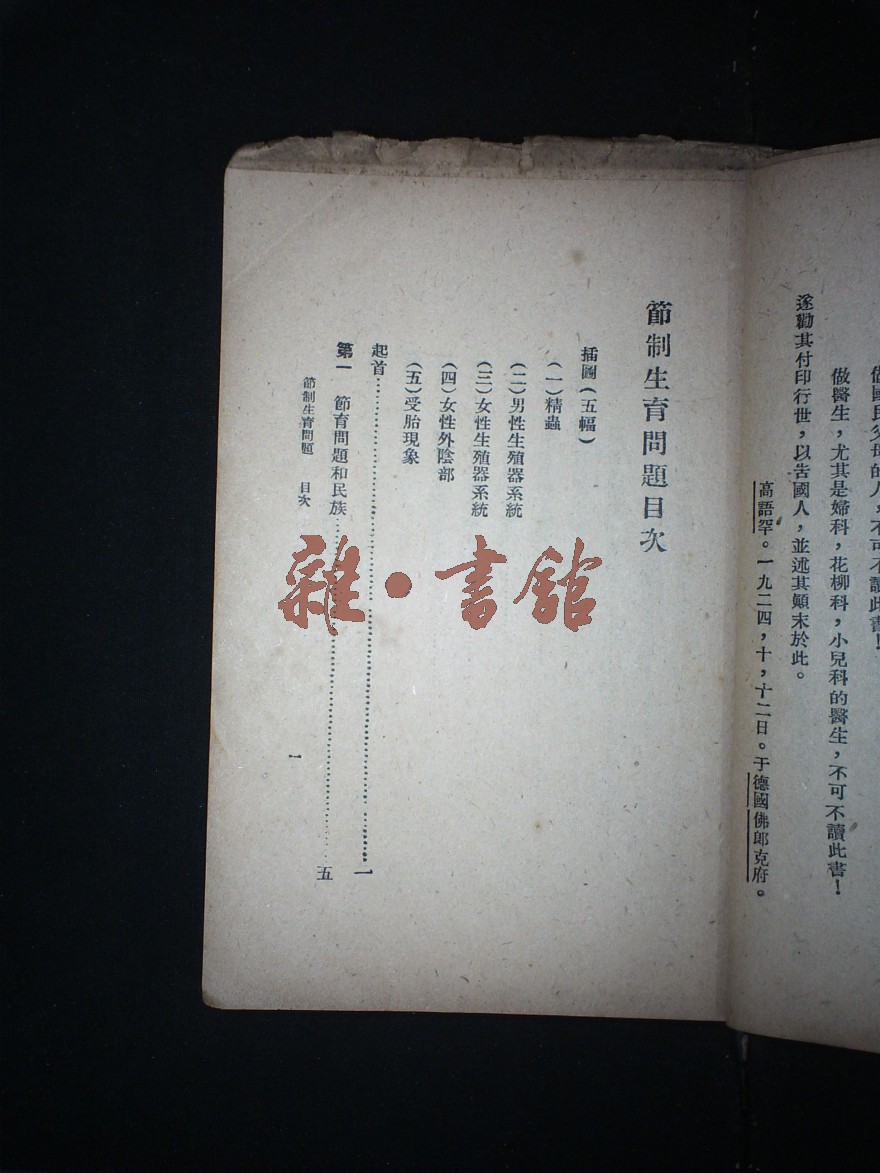 做國民父母的人，不可不讀此書！
做醫生，尤其是婦科，花柳科，小兒科的醫生，不可不讀此書！
遂勸其付印行世，以告國人，並述其顚末於此。
高語罕。一九二四，十，十二日。于德國佛郎克府。
節制生育問題目次
插圖（五幅）
（一）精蟲
（二）男性生殖器系統
（三）女性生殖器系統
（四）女性外陰部
（五）受胎現象
起首……一
第一　節育問題和民族……五
節制生育問題　目次
一
雜·書館